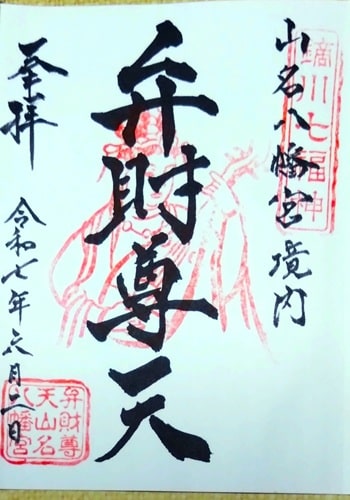 鏑川七福神
山名八幡宮境内
弁財尊天
奉拝
令和七年六月二日
弁財尊
天山名
八幡宮